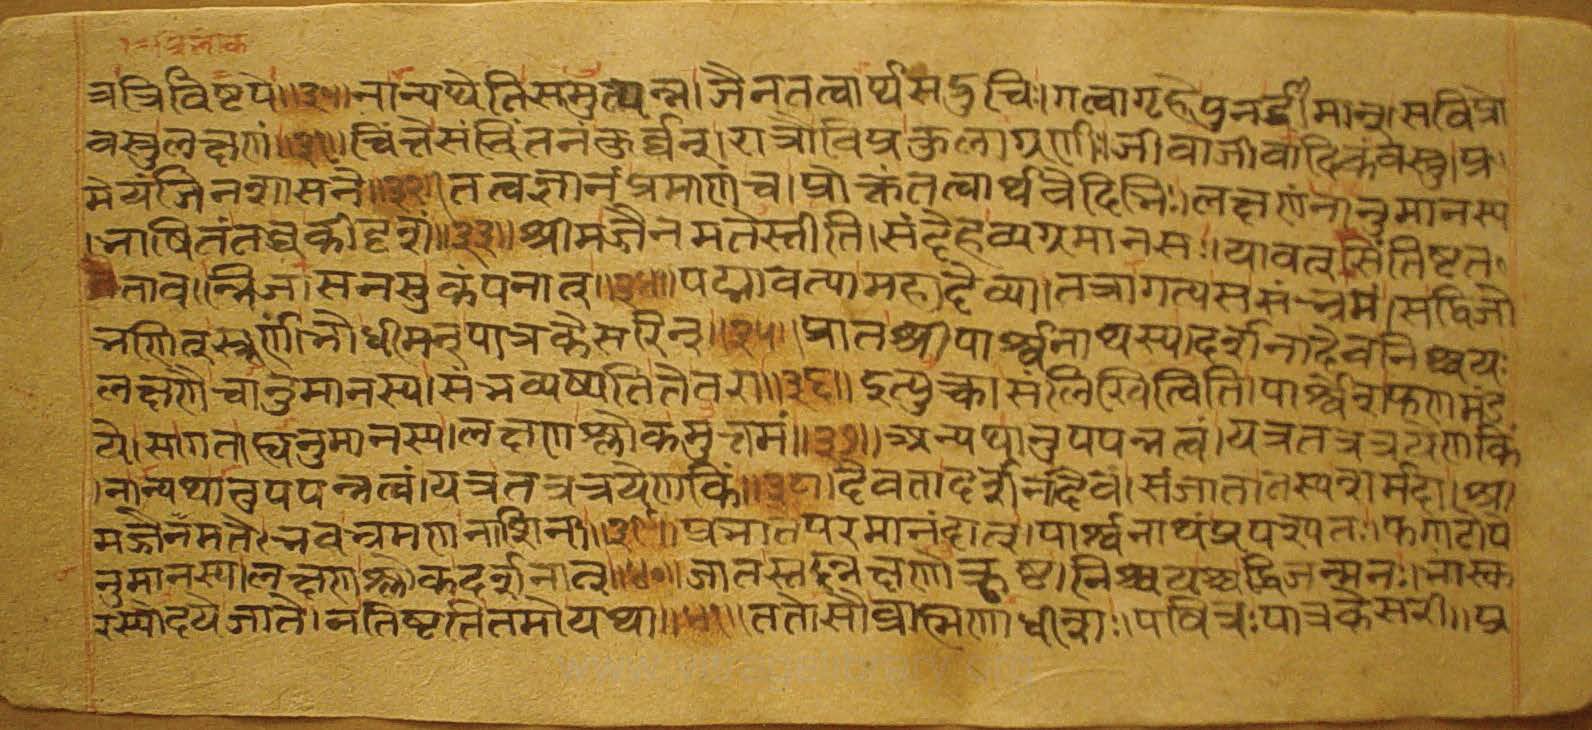 त्रत्रिविष्टपे॥३०॥नान्यप्येतिसमुत्पन्न।जैनतत्वार्थसद्रुचिः।गत्वागृहेपुनर्द्धीमान्।सविप्रो
वस्तुलक्षणं॥३१॥चिंत्तैसंचिंतनंकुर्वन्।रात्रौविप्रकुलाग्रणी॥जीवाजीवादिकंवस्तु।प्र
मेयंजिनशासने॥३२॥तत्वज्ञानंप्रमाणंच।प्रोक्तंतत्वार्थवेदिभिः।लक्षणंनानुमानस्य
।भाषितंतच्चकीदृशं॥३३॥श्रीमज्जैनमतेस्तीति।संदेहव्यग्रमानसः।यावत्संतिष्टत
तावन्निजासनसुकंपनात्॥३४॥पद्मावत्यामहादेव्या।तत्रागत्यससंभ्रमं।सद्विजो
भणितस्तूर्णंभोधीमन्पात्रकेसरिन्॥३५॥प्रातश्रीपार्श्वनाथस्यदर्शनादेवनिश्चयः
लक्षणेचानुमानस्य।संभव्यष्यतितेतरां॥३६॥इत्युक्त्वासंलिखित्वेति।पार्श्वेशफणमंड
पे।सागतास्वानुमानस्य।लक्षणश्लोकमुत्तमं॥३७॥अन्यथानुपपन्नत्वं।यत्रतत्रत्रयेणकिं
।नान्यथानुपपन्नत्वं।यत्रतत्रत्रयेणकिं॥३८॥देवतादर्शनादेवं।संजातातस्यशर्मदा।श्री
मज्जैनमतेःभवभ्रमणनाशिनी॥३९॥प्रभातेपरमानंदात्।पार्श्वनाथंप्रपश्यतः।फणाटोपे
नुमानस्य।लक्षणश्लोकदर्शनात्॥४०॥जातस्तल्लक्षणोत्कृष्ट।निश्चयश्चद्विजन्मनः।भास्क
रस्योदयेजाते।नतिष्टतितमोयथा॥४१॥ततोसौब्राह्मणाधीशः।पवित्रःपात्रकेसरी॥प्र